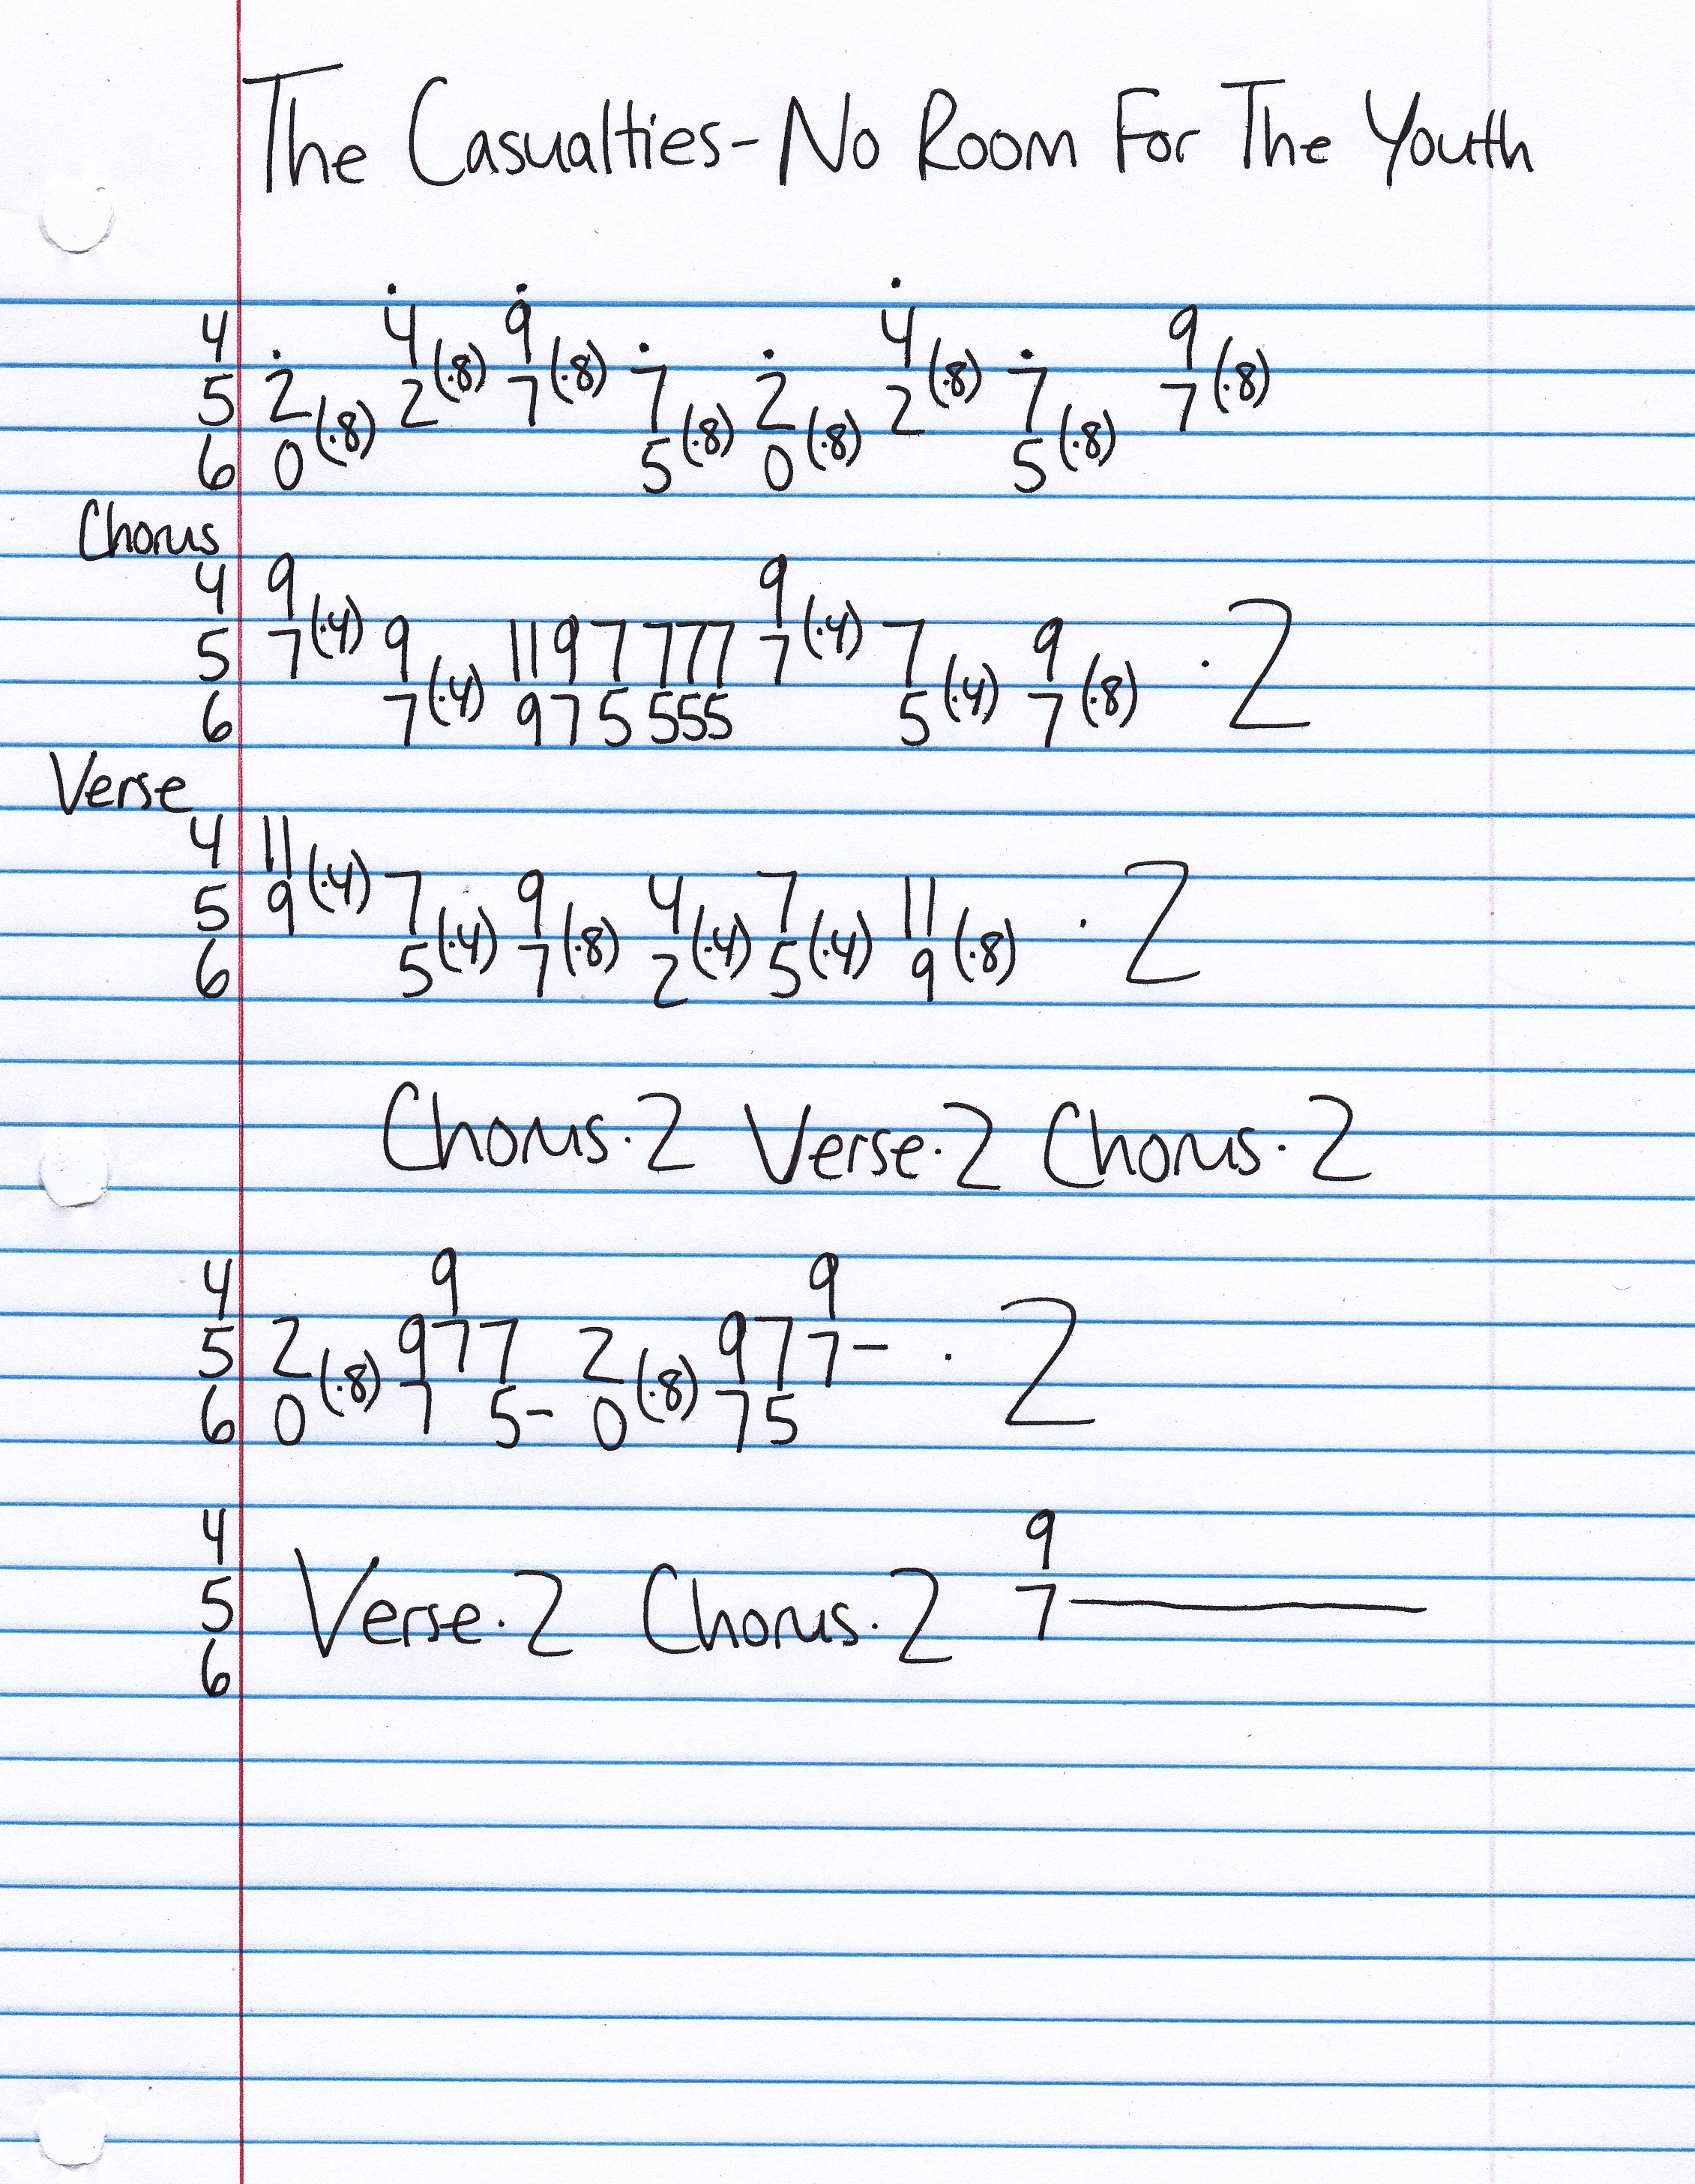 The Casualties - No Room For The Youth
4 4 9 4 9
5 2 (·8) 2 (·8) 7 (·8) 7 2 2 (·8) 7 7 (·8)
6 0 (·8) 5 (·8) 0 (·8) 5 (·8)
Chorus
4 9 9
5 7 (·4) 9 11 9 7 7 7 7 7 (·4) 7 9 · 2
6 7 (·4) 9 7 5 5 5 5 5 (·4) 7 (·8)
Verse
4 11
5 9 (·4) 7 9 4 7 11 · 2
6 5 (·4) 7 (·8) 2 (·4) 5 (·4) 9 (·8)
Chorus · 2 Verse · 2 Chorus · 2
4 9 9
5 2 9 7 7 2 9 7 7 - · 2
6 0 (·8) 7 5 - 0 (·8) 7 5
4 9
5 Verse · 2 Chorus · 2 7 ―
6